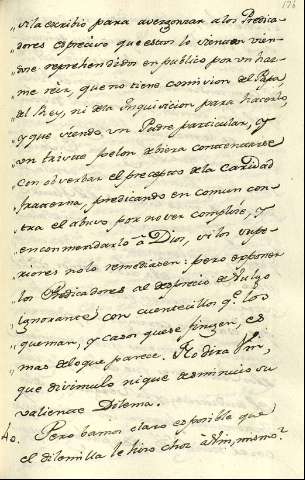 176
„ vila escribio para avergonzar a los Predica-
„ dores es preciso que estos lo sientan vien-
„ dose reprehendidos en publico por un hom-
„ me reìr, que no tiene comision del Papa
„ del Rey, ni de la Inquisicion para hacerlo
„ y que siendo un Padre particular, y
„ un triste pelon debiera contentarse
„ con observar el precepto de la Caridad
„ fraterna, predicando en comun con-
„ tra el abuso por no ser complice, y
„ encomendarlo à Dios, si los supe-
„ riores no lo remediasen: pero exponer
„ los Predicadores al desprecio del vulgo
„ ignorante con cuentecillos q.e los
„ queman, y casos que se fingen, es
„ mas de lo que parece. No dira Vm,
que disimulo ni que desminuio su
valiente Dilema.
40. Pero bamos claro es posible que
el dilemilla le hizo choz à Vm, mismo?